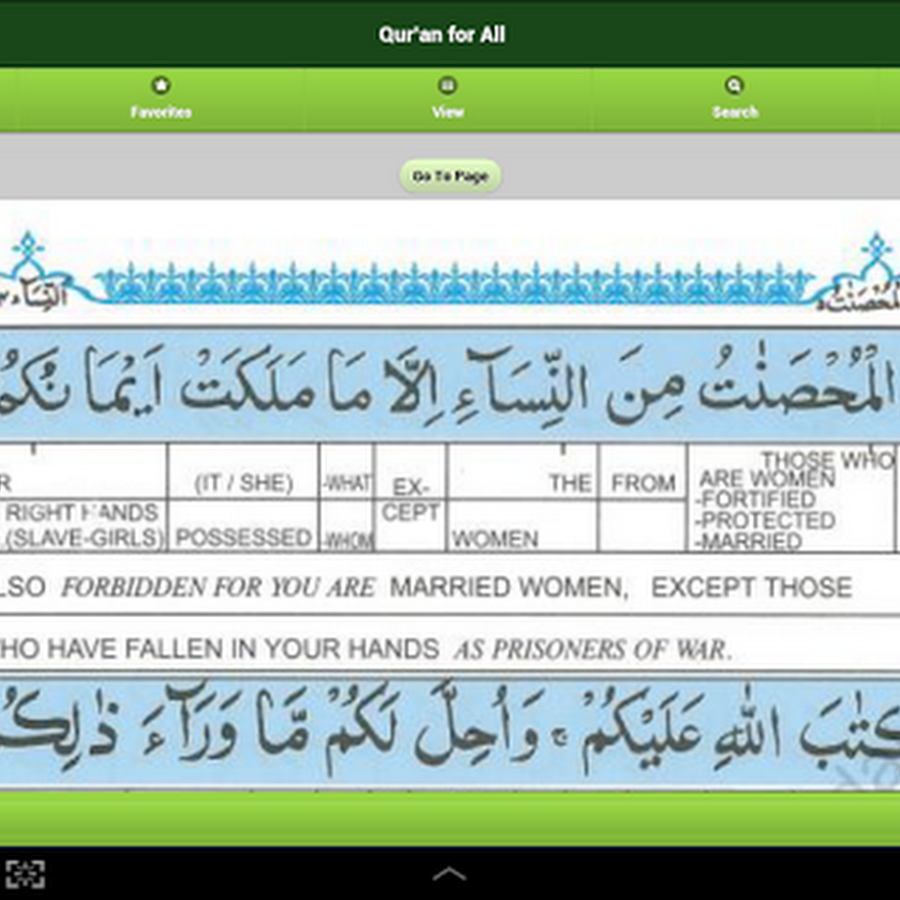 Qur'an for All
Favorites View Search
Go To Page
النِّسَآء
الْمُحْصَنٰتُ مِنَ النِّسَآءِ اِلَّا مَا مَلَكَتْ اَيْمَا نُكُمْ
R (IT / SHE) -WHAT EX- THE FROM THOSE WHO
ARE WOMEN
RIGHT HANDS CEPT -FORTIFIED
-PROTECTED
(SLAVE-GIRLS) POSSESSED -WHOM WOMEN -MARRIED
LSO FORBIDDEN FOR YOU ARE MARRIED WOMEN, EXCEPT THOSE
HO HAVE FALLEN IN YOUR HANDS AS PRISONERS OF WAR.
كِتٰبَ اللّٰهِ عَلَيْكُمْ ۚ وَاُحِلَّ لَكُمْ مَّا وَرَآءَ ذٰلِكُ